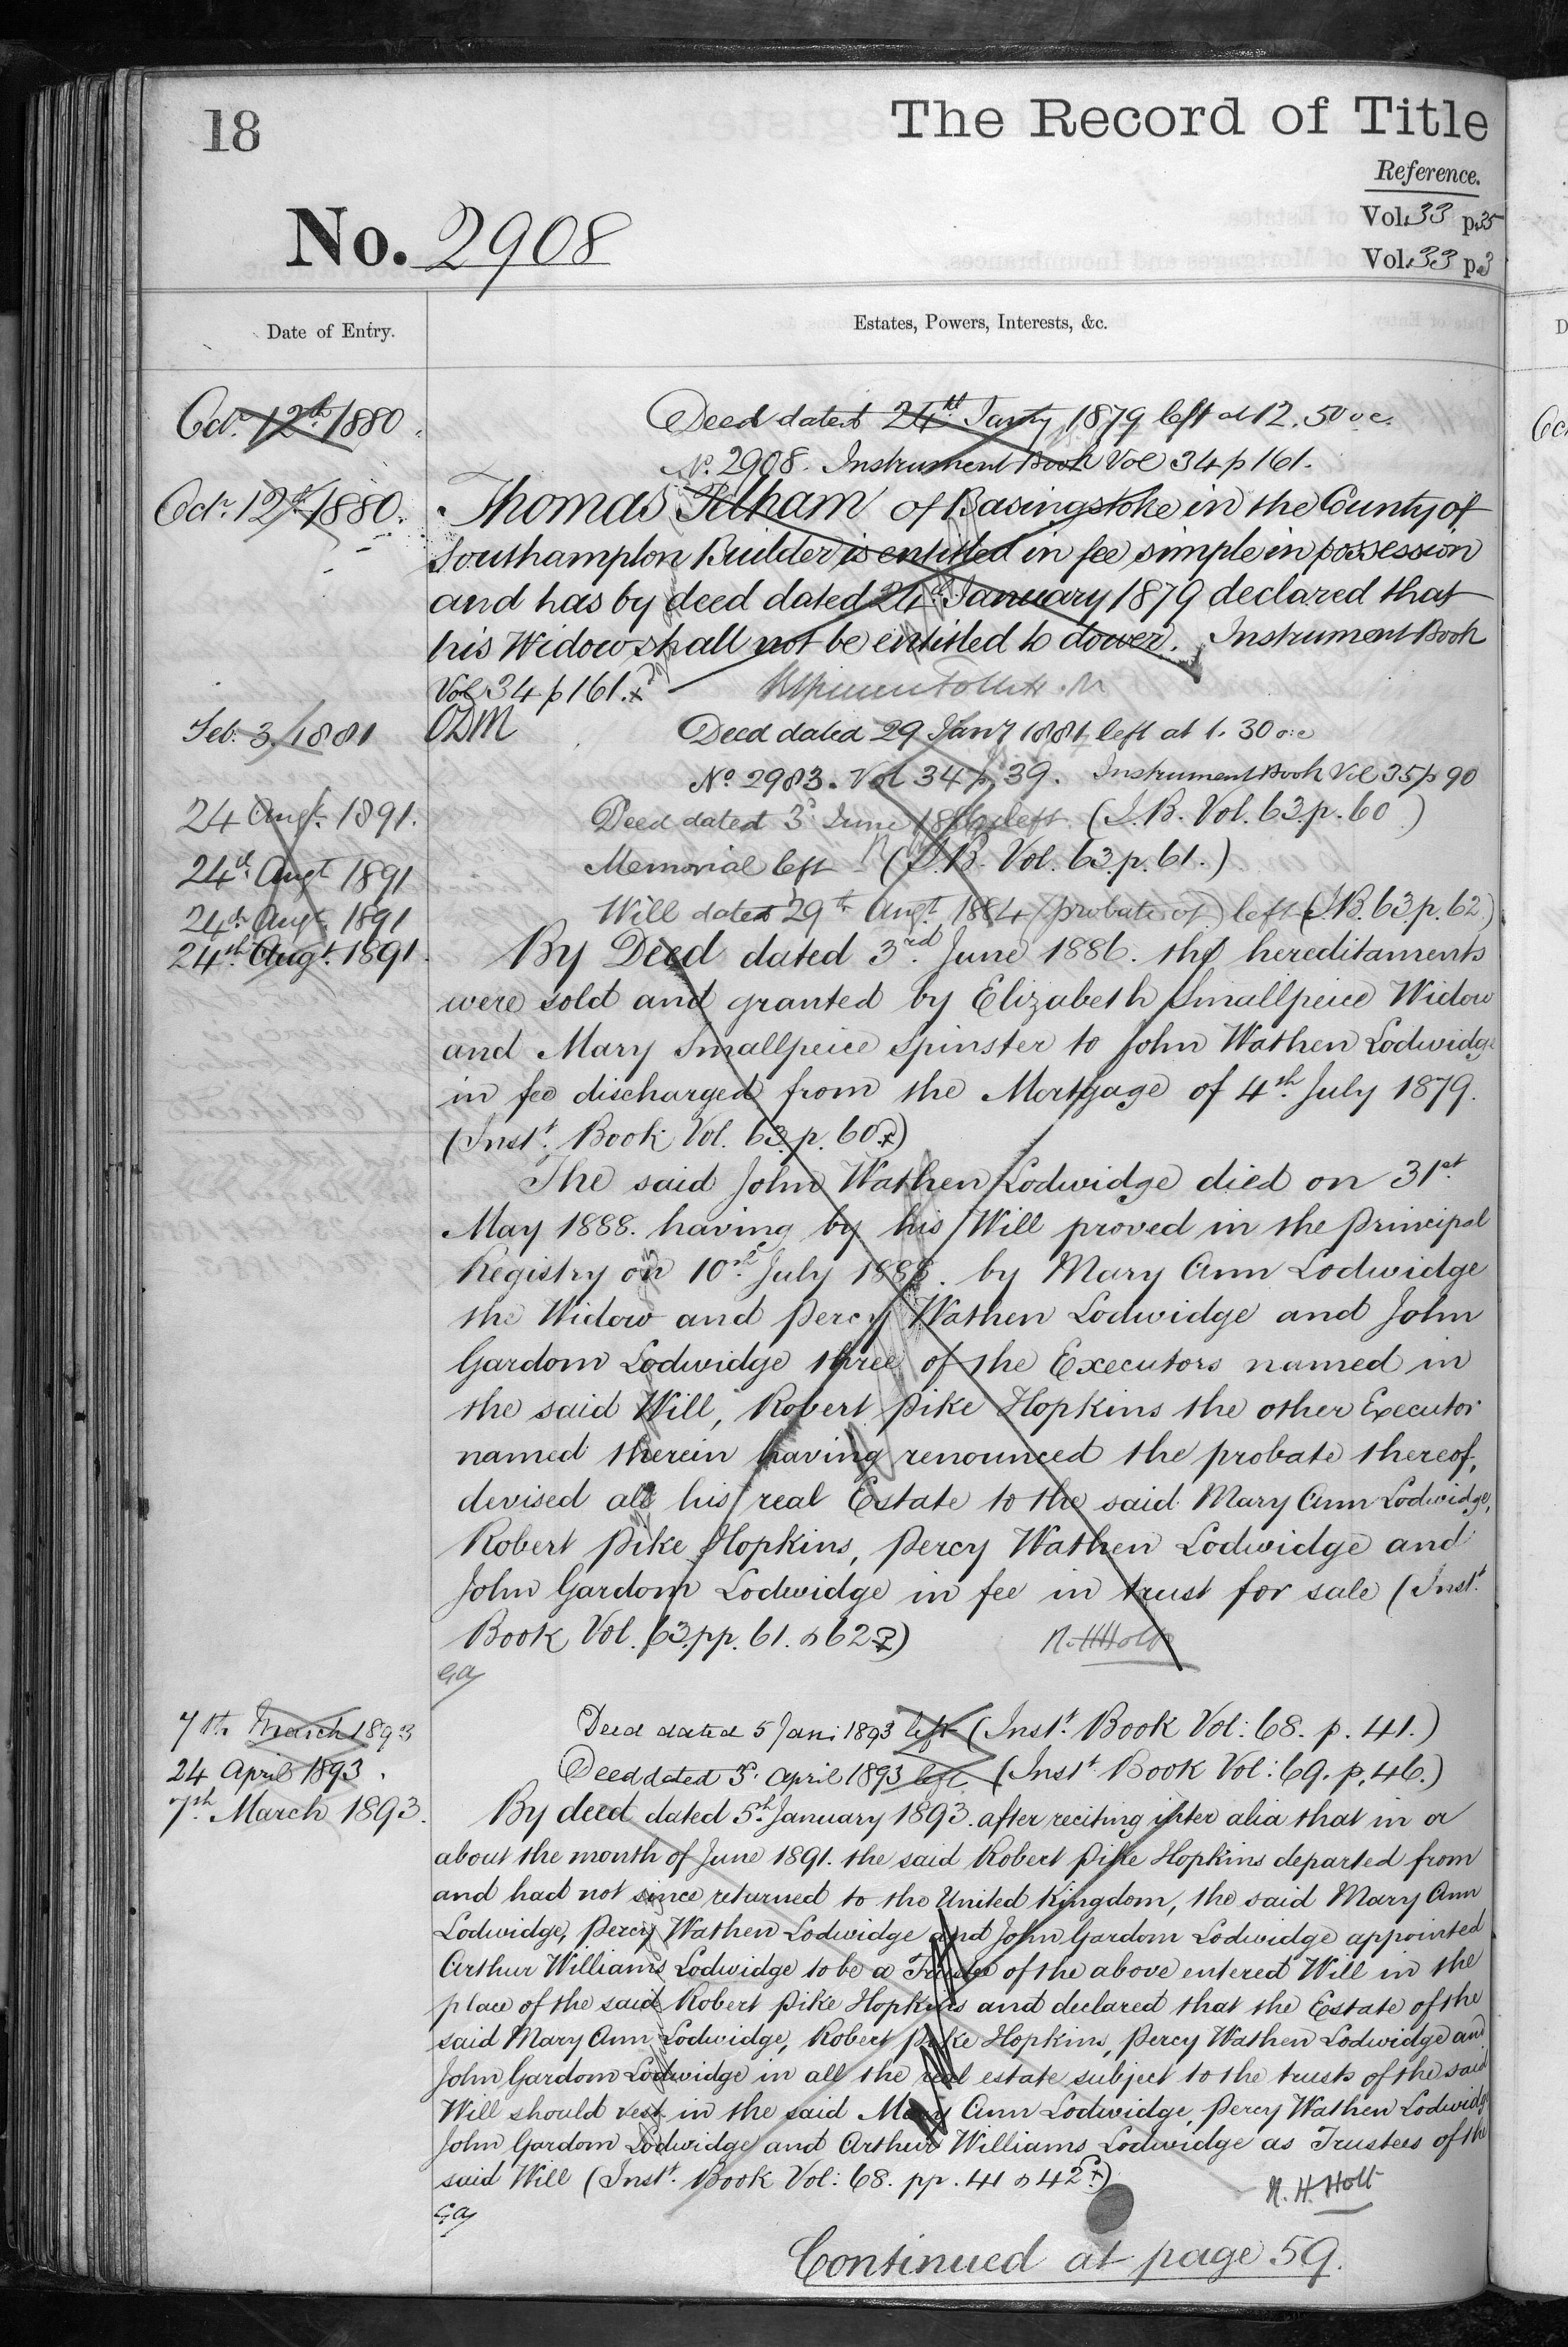 18
The Record of Title
Reference.
No. 2908
Vol. 33 p. 35
Vol. 33 p. 3
Date of Entry.
Estates, Powers, Interests, &c.
Octr. 12th 1880
Deed dated 24th Janty 1879 left at 12.50 o.c.
No. 2908. Instrument Book Vol 34 p 161.
Octr. 12th 1880.
Thomas Pelham of Basingstoke in the County of
Southampton Builder is entitled in fee simple in possession
and has by deed dated 24th January 1879 declared that
his Widow shall not be entitled to dower. Instrument Book
Vol 34 p 161.
Feb. 3/1881
Deed dated 29 Jany 1881 left at 1.30 o.c
No. 2983. Vol 34 p 39. Instrument Book Vol 35 p 90
24 Augt. 1891.
Deed dated 3d June 1886 left (I.B. Vol. 63. p. 60)
24th Augt 1891
Memorial left (I.B. Vol. 63. p. 61.)
24th Augt. 1891
Will dated 29th Augt. 1884 (probate of) left (I.B. 63. p. 62)
24th Augt. 1891.
By Deed dated 3rd. June 1886. the hereditaments
were sold and granted by Elizabeth Smallpeice Widow
and Mary Smallpeice Spinster to John Wathen Lodwidge
in fee discharged from the Mortgage of 4th. July 1879.
(Instt. Book Vol. 63. p. 60)
The said John Wathen Lodwidge died on 31st.
May 1888. having by his Will proved in the Principal
Registry on 10th. July 1888. by Mary Ann Lodwidge
the Widow and Percy Wathen Lodwidge and John
Gardom Lodwidge three of the Executors named in
the said Will, Robert Pike Hopkins the other Executor
named therein having renounced the probate thereof,
devised all his real Estate to the said Mary Ann Lodwidge,
Robert Pike Hopkins, Percy Wathen Lodwidge and
John Gardom Lodwidge in fee in trust for sale (Instt.
Book Vol. 63. pp. 61. & 62)
N. H. Holt
7th March 1893
Deed dated 5 Jan: 1893 left (Instt. Book Vol: 68. p. 41.)
24 April 1893.
Deed dated 3d. April 1893 left. (Instt Book Vol: 69. p. 46.)
7th March 1893.
By deed dated 5th. January 1893. after reciting inter alia that in or
about the month of June 1891. the said Robert Pike Hopkins departed from
and had not since returned to the United Kingdom, the said Mary Ann
Lodwidge, Percy Wathen Lodwidge and John Gardom Lodwidge appointed
Arthur Williams Lodwidge to be a Trustee of the above entered Will in the
place of the said Robert Pike Hopkins and declared that the Estate of the
said Mary Ann Lodwidge, Robert Pike Hopkins, Percy Wathen Lodwidge and
John Gardom Lodwidge in all the real estate subject to the trusts of the said
Will should vest in the said Mary Ann Lodwidge, Percy Wathen Lodwidge
John Gardom Lodwidge and Arthur Williams Lodwidge as Trustees of the
said Will (Instt. Book Vol: 68. pp. 41 & 42)
N. H. Holt
Continued at page 59.